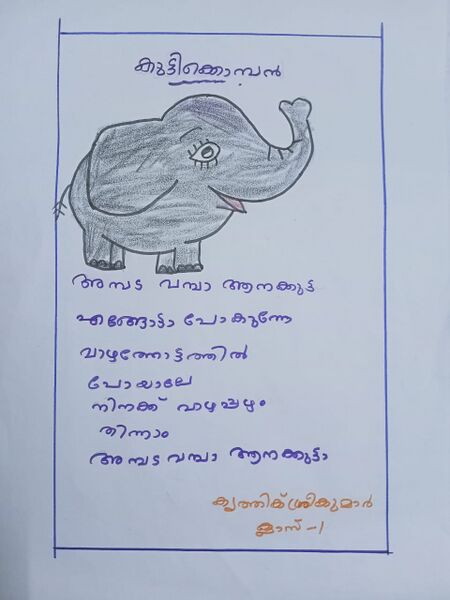 കുട്ടിക്കൊമ്പൻ
അമ്പട വമ്പാ ആനക്കുട്ട
എങ്ങോട്ടാ പോകുന്നേ
വാഴത്തോട്ടത്തിൽ
പോയാലേ
നിനക്ക് വാഴപ്പഴം
തിന്നാം
അമ്പട വമ്പാ ആനക്കുട്ടാ
കൃത്തിക് ശ്രീകുമാർ
ക്ലാസ് -1